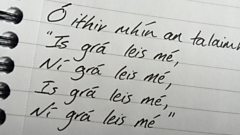 Ó ithir mhín an talaimh
"Is grá leis mé,
Ní grá leis mé,
Is grá leis mé,
Ní grá leis mé"